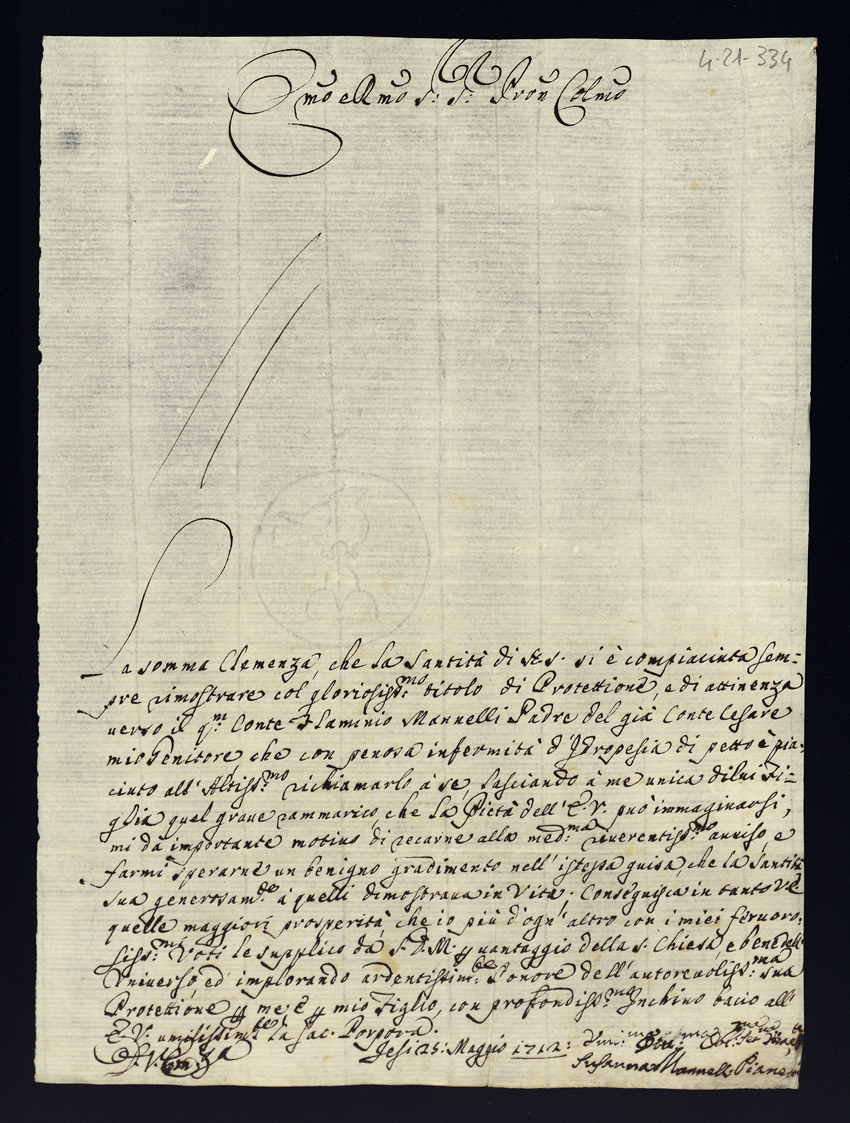 4-21-334
Emo e Rmo S: S: Pron Colmo
La somma Clemenza, che la Santità di N.S. si è compiaciuta sem=
pre rimostrare col gloriosiss:mo titolo di Protettione, e di attinenza
verso il qm Conte Flaminio Mannelli Padre del già Conte Cesare
mio Genitore che con penosa infermità d'Idropesia di petto è pia=
ciuto all'Altiss:mo richiamarlo à se, lasciando à me unica di lui Fi=
glia quel grave rammarico che la Pietà dell'E.V. può immaginarsi,
mi dà importante motivo di recarne alla med:ma riverentiss:mo avviso, e
farmi sperarne un benigno gradimento nell'istessa guisa, che la Santità
sua generosam:te à quelli dimostrava in Vita; Conseguisca in tanto V.E.
quelle maggiori prosperità, che io più d'ogn'altro con i miei fervoro=
siss:mi Voti le supplico da S.D.M. p vantaggio della S. Chiesa e bene dell'
Universo, ed implorando ardentissim:te l'onore dell'autorevoliss:ma sua
Protettione p me, e p mio Figlio, con profondiss:mo Inchino bacio all'
E.V. umilissim:te la Sac. Porpora.
Jesi 25: Maggio 1712:
Susanna Mannelli Pianetti